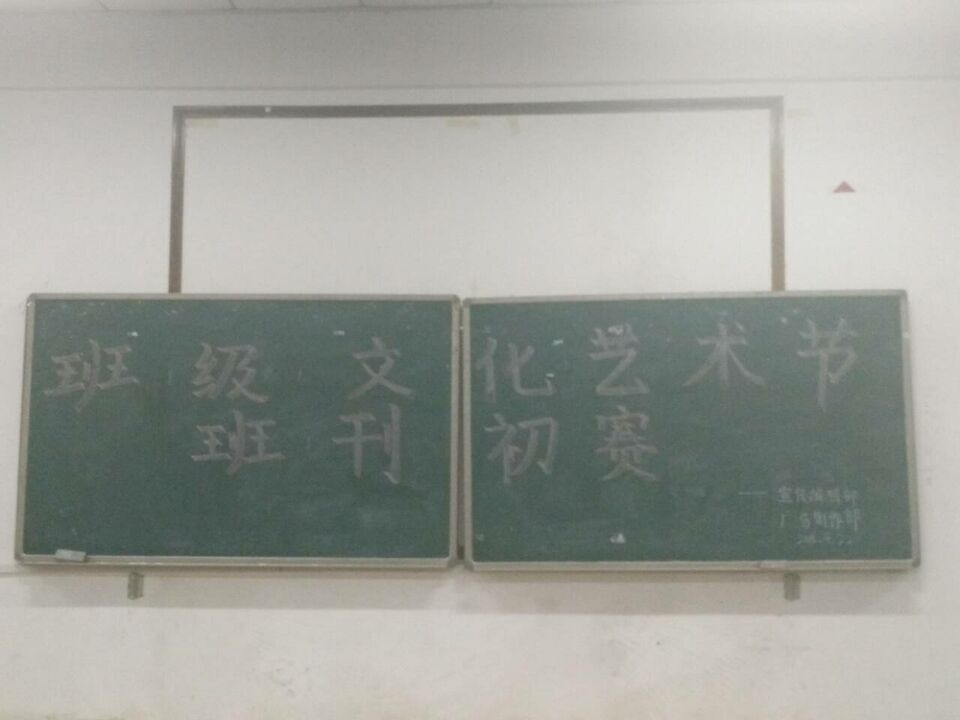 班级文化艺术节
班刊初赛
——宣传编辑部
广告制作部